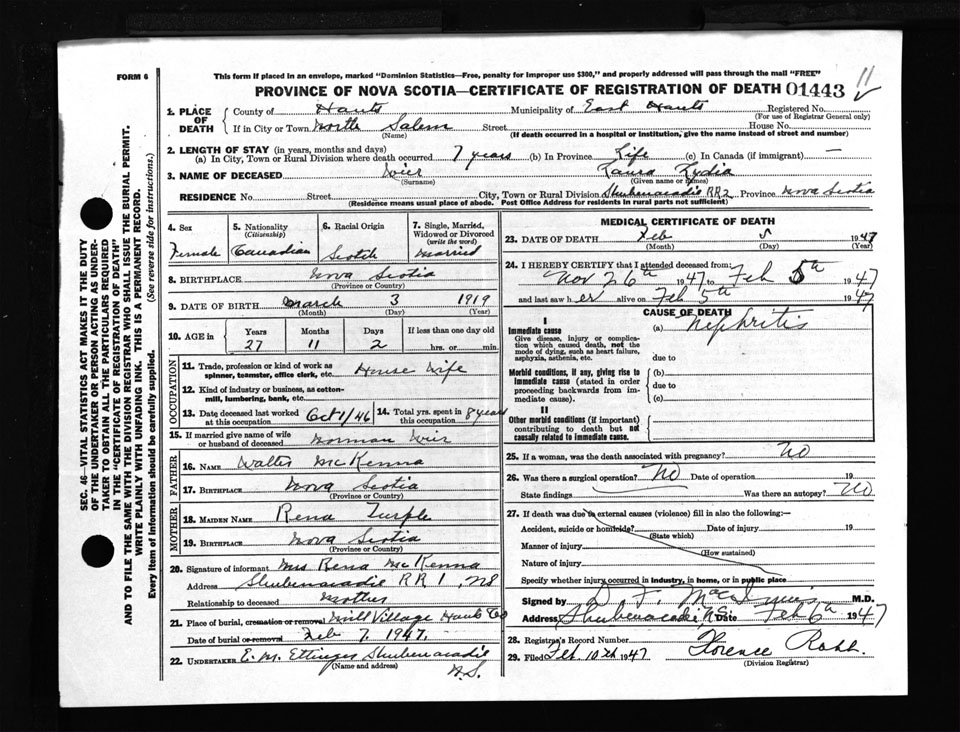 FORM 6
This form if placed in an envelope, marked "Dominion Statistics—Free, penalty for improper use $300," and properly addressed will pass through the mail "FREE"
11
PROVINCE OF NOVA SCOTIA—CERTIFICATE OF REGISTRATION OF DEATH 01443
SEC. 46—VITAL STATISTICS ACT MAKES IT THE DUTY
OF THE UNDERTAKER OR PERSON ACTING AS UNDER-
TAKER TO OBTAIN ALL THE PARTICULARS REQUIRED
IN THE "CERTIFICATE OF REGISTRATION OF DEATH"
AND TO FILE THE SAME WITH THE DIVISION REGISTRAR WHO SHALL ISSUE THE BURIAL PERMIT.
WRITE PLAINLY WITH UNFADING INK. THIS IS A PERMANENT RECORD.
Every item of information should be carefully supplied. (See reverse side for instructions.)
1. PLACE OF DEATH
County of Hants Municipality of East Hants Registered No.
(For use of Registrar General only)
If in City or Town North Salem Street House No.
(Name) (If death occurred in a hospital or institution, give the name instead of street and number)
2. LENGTH OF STAY (in years, months and days)
(a) In City, Town or Rural Division where death occurred 7 years (b) In Province Life (c) In Canada (if immigrant) —
3. NAME OF DECEASED Weir Laura Lydia
(Surname) (Given name or names)
RESIDENCE No. Street City, Town or Rural Division Shubenacadie RR2 Province Nova Scotia
(Residence means usual place of abode. Post Office Address for residents in rural parts not sufficient)
4. Sex Female
5. Nationality (Citizenship) Canadian
6. Racial Origin Scotch
7. Single, Married, Widowed or Divorced (write the word) Married
8. BIRTHPLACE Nova Scotia
(Province or Country)
9. DATE OF BIRTH March 3 1919
(Month) (Day) (Year)
10. AGE in Years Months Days If less than one day old
27 11 2 hrs. or min.
OCCUPATION
11. Trade, profession or kind of work as House Wife
spinner, teamster, office clerk, etc.
12. Kind of industry or business, as cotton-
mill, lumbering, bank, etc.
13. Date deceased last worked at this occupation Oct 1/46 14. Total yrs. spent in this occupation 8 years
15. If married give name of wife
or husband of deceased Norman Weir
FATHER
16. NAME Walter McKenna
17. BIRTHPLACE Nova Scotia
(Province or Country)
MOTHER
18. MAIDEN NAME Rena Turple
19. BIRTHPLACE Nova Scotia
(Province or Country)
20. Signature of informant Mrs Rena McKenna
Address Shubenacadie RR 1, NS
Relationship to deceased Mother
21. Place of burial, cremation or removal Mill Village Hants Co
Date of burial or removal Feb 7 1947.
22. UNDERTAKER E. M. Ettinger Shubenacadie
(Name and address) N.S.
MEDICAL CERTIFICATE OF DEATH
23. DATE OF DEATH Feb 5 1947
(Month) (Day) (Year)
24. I HEREBY CERTIFY that I attended deceased from:
Nov 26th 1947 to Feb 5th 1947
and last saw her alive on Feb 5th 1947
CAUSE OF DEATH
I
Immediate cause (a) Nephritis
Give disease, injury or complica-
tion which caused death, not the
mode of dying, such as heart failure,
asphyxia, asthenia, etc. due to
Morbid conditions, if any, giving rise to (b)
immediate cause (stated in order due to
proceeding backwards from im-
mediate cause). (c)
II
Other morbid conditions (if important)
contributing to death but not
causally related to immediate cause.
25. If a woman, was the death associated with pregnancy? No
26. Was there a surgical operation? No Date of operation 19
State findings Was there an autopsy? No
27. If death was due to external causes (violence) fill in also the following:—
Accident, suicide or homicide? Date of injury 19
(State which)
Manner of injury
(How sustained)
Nature of injury
Specify whether injury occurred in industry, in home, or in public place
Signed by D. F. MacInnis M.D.
Address Shubenacadie, N.S. Date Feb 6th 1947
28. Registrar's Record Number
29. Filed Feb. 10th 1947 Florence Robb.
(Division Registrar)